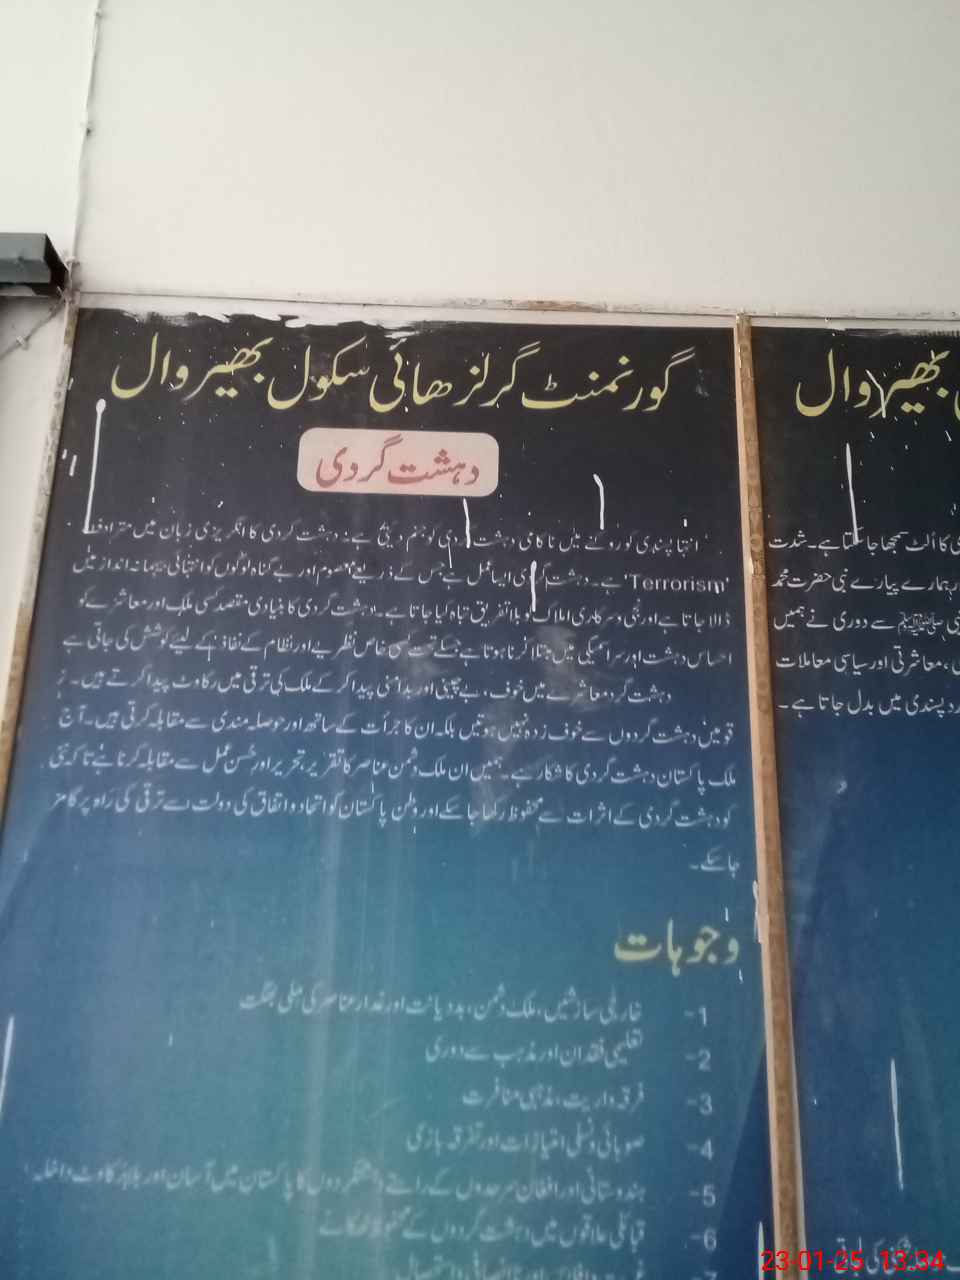 گورنمنٹ گرلز ھائی سکول بھیرووال
دہشت گردی
انتہا پسندی کو روکنے میں ناکامی دہشت گردی کو جنم دیتی ہے۔ دہشت گردی کا انگریزی زبان میں مترادف
'Terrorism' ہے۔ دہشت گردی ایسا عمل ہے جس کے ذریعے معصوم اور بے گناہ لوگوں کو انتہائی بہیمانہ انداز میں
ڈالا جاتا ہے اور نجی و سرکاری املاک کو بلا تفریق تباہ کیا جاتا ہے۔ دہشت گردی کا بنیادی مقصد کسی ملک اور معاشرے کو
احساس دہشت اور سراسیمگی میں مبتلا کرنا ہوتا ہے جسکے تحت کسی خاص نظریے اور نظام کے نفاذ کے لیئے کوشش کی جاتی ہے
دہشت گرد معاشرے میں خوف، بے چینی اور بدامنی پیدا کر کے ملک کی ترقی میں رکاوٹ پیدا کرتے ہیں۔
قومیں دہشت گردوں سے خوف زدہ نہیں ہوتیں بلکہ ان کا جرأت کے ساتھ اور حوصلہ مندی سے مقابلہ کرتی ہیں۔ آج
ملک پاکستان دہشت گردی کا شکار ہے۔ ہمیں ان ملک دشمن عناصر کا تقریر، تحریر اور حُسن عمل سے مقابلہ کرنا ہے تا کہ نئی
کو دہشت گردی کے اثرات سے محفوظ رکھا جا سکے اور وطن پاکستان کو اتحاد و اتفاق کی دولت سے ترقی کی راہ پر گامز
جا سکے۔
وجوہات
1- خارجی سازشیں، ملک دشمن، بددیانت اور غدار عناصر کی ملی بھگت
2- تعلیمی فقدان اور مذہب سے دوری
3- فرقہ واریت، مذہبی منافرت
4- صوبائی و نسلی امتیازات اور تفرقہ بازی
5- ہندوستانی اور افغان سرحدوں کے راستے دہشتگردوں کا پاکستان میں آسان اور بلا رکاوٹ داخلہ
6- قبائلی علاقوں میں دہشت گردوں کے محفوظ ٹھکانے
7-
بھیرووال
کا اُلٹ سمجھا جا سکتا ہے۔ شدت
ور ہمارے پیارے نبی حضرت محمد
ﷺ سے دوری نے ہمیں
، معاشرتی اور سیاسی معاملات
د پسندی میں بدل جاتا ہے۔
23-01-25 13:34